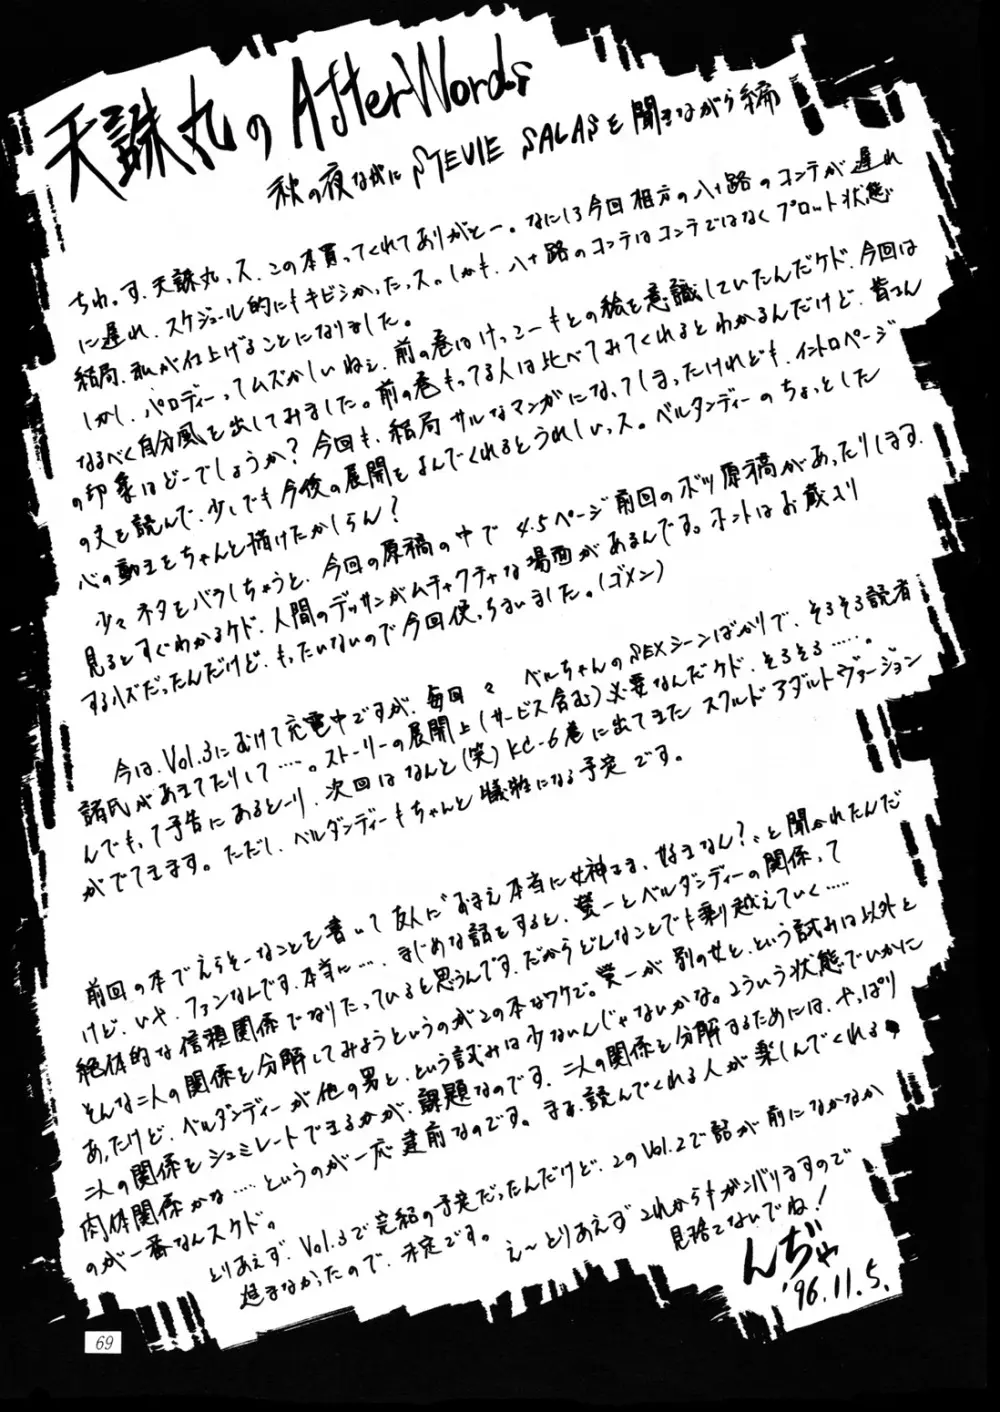 天誅丸の AfterWords
秋の夜ながに STEVIE SALASを聞きながら編
ちわっす、天誅丸っス、この本買ってくれてありがとー。なにしろ今回相方の八十路のコンテが遅れ
に遅れ、スケジュール的にもキビシかったっス。しかも、八十路のコンテはコンテではなくプロット状態
結局、私が仕上げることになりました。
しかし、パロディーってムズかしいねぇ、前の巻はけっこーもとの絵を意識していたんだケド、今回は
なるべく自分風を出してみました。前の巻もってる人は比べてみてくれるとわかるんだけど、皆さん
の印象はどーでしょうか？今回も、結局サルなマンガになってしまったけれども、イントロページ
の文を読んで、少しでも今後の展開をよんでくれるとうれしいっス。ベルダンディーのちょっとした
心の動きをちゃんと描けたかしらん？
少々ネタをバラしちゃうと、今回の原稿の中で4.5ページ前回のボツ原稿があったりします、
見るとすぐわかるケド、人間のデッサンがムチャクチャな場面があるんです。ホントはお蔵入り
するハズだったんだけど、もったいないので今回使っちまいました。（ゴメン）
今は、Vol.3にむけて充電中ですが、毎回々 ベルちゃんのSEXシーンばかりで、そろそろ読者
諸氏があきてたりして……。ストーリーの展開上（サービス含む）必要なんだケド、そろそろ……。
んでもって予告にあるとーり、次回はなんと（笑）KC-6巻に出てきたスクルドアダルトヴァージョン
がでてきます。ただし、ベルダンディーもちゃんと犠牲になる予定です。
前回の本でえらそーなことを書いて友人に"おまえ本当に女神さま、好きなん？"と聞かれたんだ
けど、いや、ファンなんです、本当に…、まじめな話をすると、螢一とベルダンディーの関係って
絶体的な信頼関係でなりたっていると思うんです、だからどんなことでも乗り越えていく……
そんな二人の関係を分解してみようというのがこの本なワケで。螢一が別の女と、という試みは以外と
あったけど、ベルダンディーが他の男と、という試みは少ないんじゃないかな。こういう状態でいかに
二人の関係をシュミレートできるかが、課題なのです、二人の関係を分解するためには、やっぱり
肉体関係かな……というのが一応建前なのです。まぁ、読んでくれる人が楽しんでくれる
のが一番なんスケド。
とりあえず、Vol.3で完結の予定だったんだけど、このVol.2で話が前になかなか
進まなかったので、未定です。
え〜とりあえずこれからもガンバりますので
見捨てないでね！
んぢゃ
'96.11.5.
69